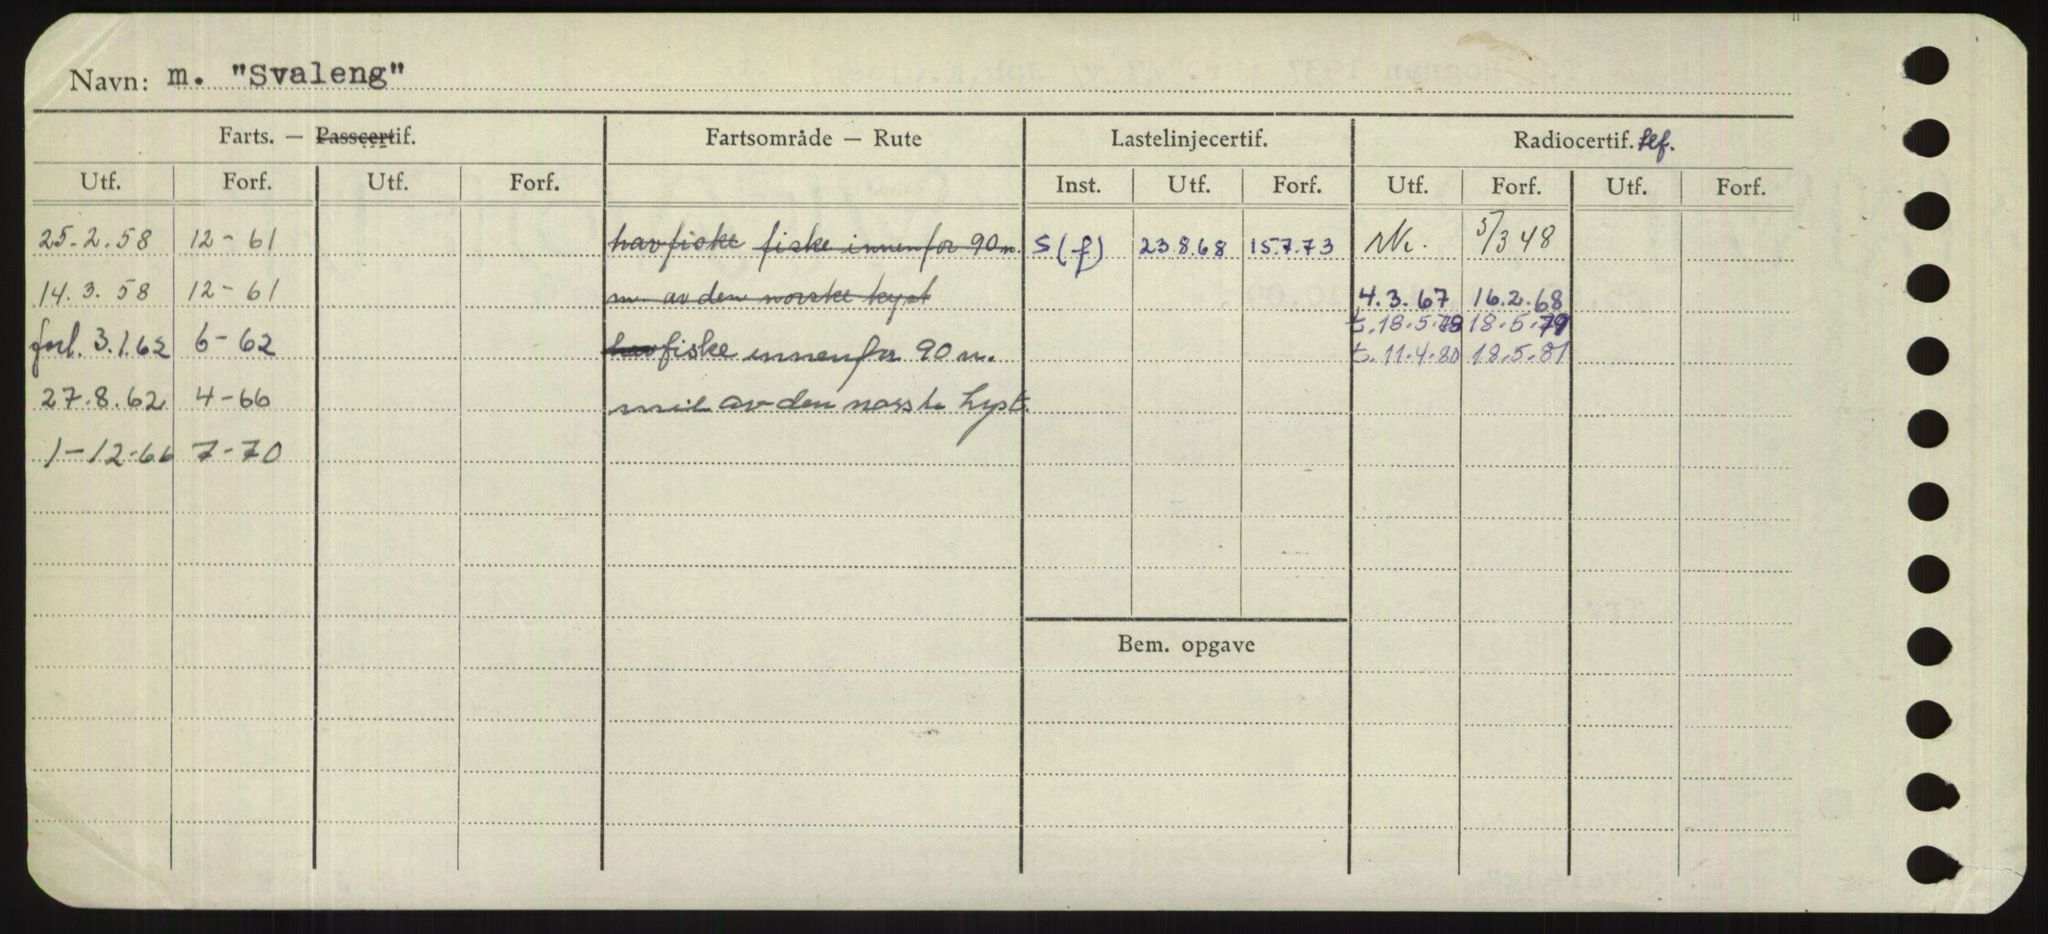 Navn: m. "Svaleng"
Farts. — Passcertif. Fartsområde — Rute Lastelinjecertif. Radiocertif. tlf.
Utf. Forf. Utf. Forf. Inst. Utf. Forf. Utf. Forf. Utf. Forf.
25.2.58 12-61 havfiske fiske innenfor 90 n. S (f) 23.8.68 15.7.73 5/3 48
14.3.58 12-61 m. av den norske kyst 4.3.67 16.2.68
t. 18.5.78 18.5.79
forl. 3.1.62 6-62 havfiske innenfor 90 n. t. 11.4.80 18.5.81
27.8.62 4-66 mil av den norske kyst.
1-12-66 7-70
Bem. opgave